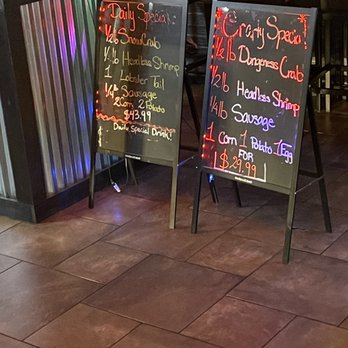 Daily Special
1/2 lb Snow Crab
1/2 lb Headless Shrimp
1 Lobster Tail
1/4 lb Sausage
2 Corn 2 Potato
$43.99
Double Special Drink!
Crazy Special
1/2 lb Dungeness Crab
1/2 lb Headless Shrimp
1/4 lb Sausage
1 corn 1 Potato 1 Egg
FOR
1 $29.99